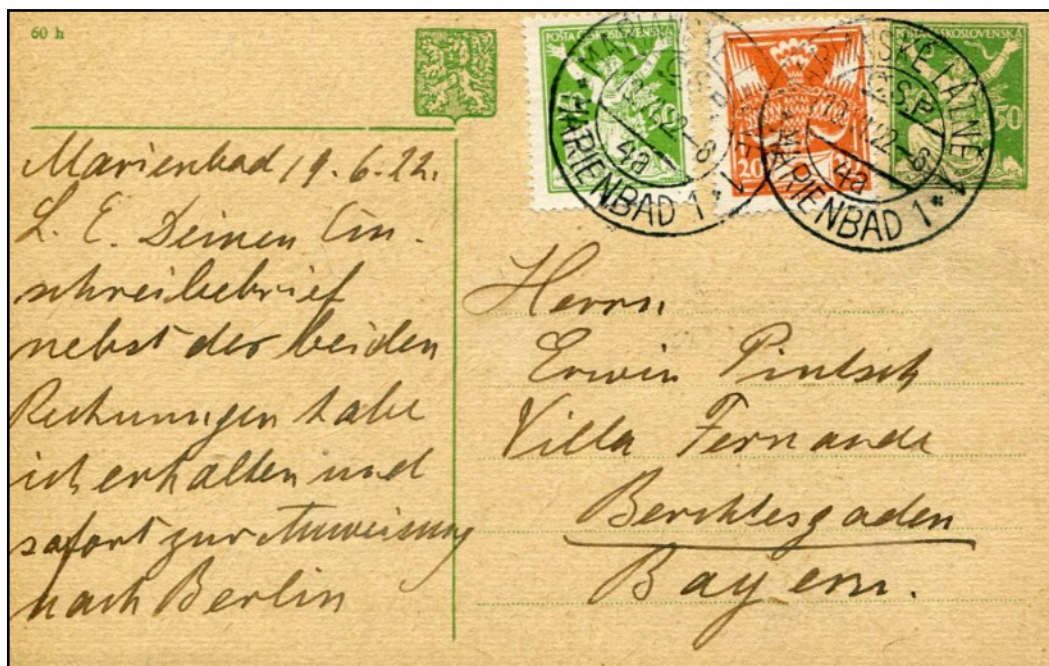 60 h
POŠTA ČESKOSLOVENSKÁ
POŠTA ČESKOSLOVENSKÁ
50
20
MARIÁNSKÉ LÁZNĚ
Č.S.P.
19.VI.22-8
4a
MARIENBAD 1
MARIENBAD 1
Marienbad 19.6.22.
L. E. Deinen Ein-
schreibebrief
nebst der beiden
Rechnungen habe
ich erhalten und
sofort zur Anweisung
nach Berlin
Herrn
Erwin Pintsch
Villa Fernanda
Berchtesgaden
Bayern.